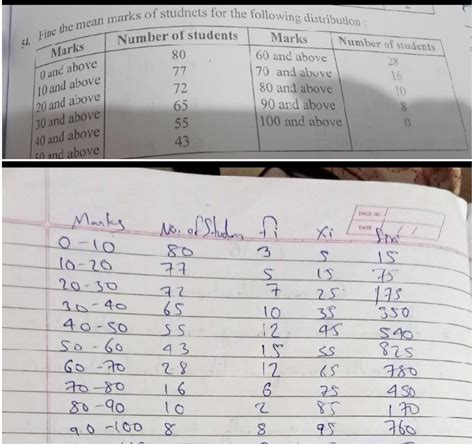 51. Fine the mean marks of studnets for the following distribution :
Marks Number of students Marks Number of students
0 and above 80 60 and above 28
10 and above 77 70 and above 16
20 and above 72 80 and above 10
30 and above 65 90 and above 8
40 and above 55 100 and above 0
50 and above 43
PAGE NO.
DATE / /
Marks No. of Studen fi xi fixi
0-10 80 3 5 15
10-20 77 5 15 75
20-30 72 7 25 175
30-40 65 10 35 350
40-50 55 12 45 540
50-60 43 15 55 825
60-70 28 12 65 780
70-80 16 6 75 450
80-90 10 2 85 170
90-100 8 8 95 760